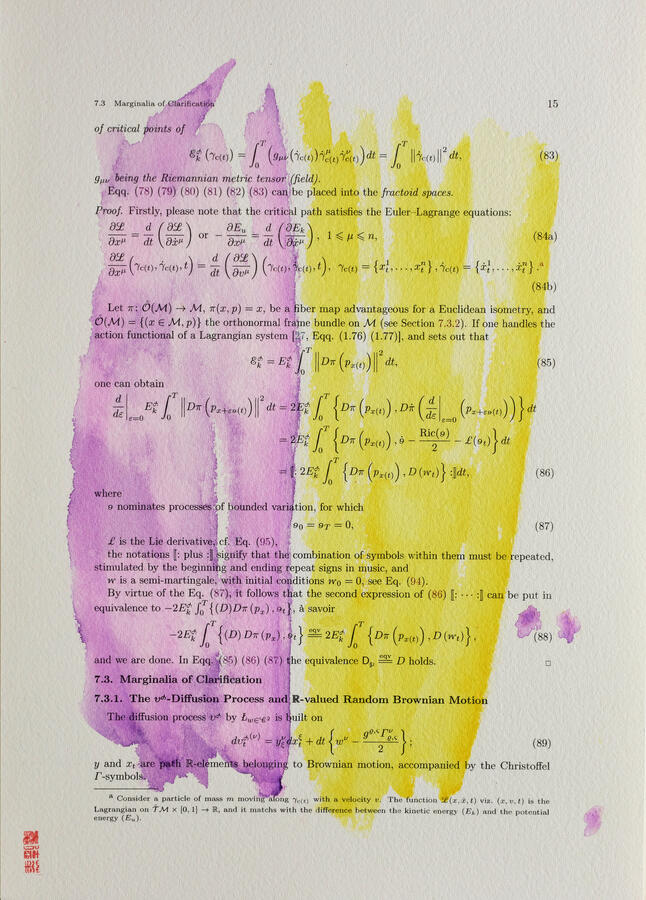 7.3 Marginalia of Clarification 15
of critical points of
ℰ_k^ (γ_{c(t)}) = ∫_0^T (g_{μν}(γ̇_{c(t)}) γ̇^μ_{c(t)} γ̇^ν_{c(t)}) dt = ∫_0^T ‖γ̇_{c(t)}‖² dt, (83)
g_{μν} being the Riemannian metric tensor (field).
Eqq. (78) (79) (80) (81) (82) (83) can be placed into the fractoid spaces.
Proof. Firstly, please note that the critical path satisfies the Euler–Lagrange equations:
∂ℒ/∂x^μ = d/dt (∂ℒ/∂ẋ^μ) or − ∂E_u/∂x^μ = d/dt (∂E_k/∂ẋ^μ), 1 ⩽ μ ⩽ n, (84a)
∂ℒ/∂x^μ (γ_{c(t)}, γ̇_{c(t)}, t) = d/dt (∂ℒ/∂v^μ) (γ_{c(t)}, γ̇_{c(t)}, t), γ_{c(t)} = {x_t^1, . . . , x_t^n}, γ̇_{c(t)} = {ẋ_t^1, . . . , ẋ_t^n}.^a
(84b)
Let π: Ô(ℳ) → ℳ, π(x, p) = x, be a fiber map advantageous for a Euclidean isometry, and
Ô(ℳ) = {(x ∈ ℳ, p)} the orthonormal frame bundle on ℳ (see Section 7.3.2). If one handles the
action functional of a Lagrangian system Eqq. (1.76) (1.77)], and sets out that
ℰ_k^ = E_k^ ∫_0^T ‖Dπ (p_{x(t)})‖² dt, (85)
one can obtain
d/dε |_{ε=0} E_k^ ∫_0^T ‖Dπ (p_{x+εɘ(t)})‖² dt = 2E_k^ ∫_0^T {Dπ (p_{x(t)}), Dπ̇ (d/dε |_{ε=0} (p_{x+εɘ(t)}))} dt
= 2E_k^ ∫_0^T {Dπ (p_{x(t)}), ɘ̇ − Ric(ɘ)/2 − ℒ(ɘ_t)} dt
= ⟦: 2E_k^ ∫_0^T {Dπ (p_{x(t)}), D (w_t)} :⟧dt, (86)
where
ɘ nominates processes of bounded variation, for which
ɘ_0 = ɘ_T = 0, (87)
ℒ is the Lie derivative, cf. Eq. (95),
the notations ⟦: plus :⟧ signify that the combination of symbols within them must be repeated,
stimulated by the beginning and ending repeat signs in music, and
w is a semi-martingale, with initial conditions w_0 = 0, see Eq. (94).
By virtue of the Eq. (87), it follows that the second expression of (86) ⟦: · · · :⟧ can be put in
equivalence to −2E_k^ ∫_0^T {(D)Dπ (p_x) . ɘ_t}, à savoir
−2E_k^ ∫_0^T {(D) Dπ (p_x) . ɘ_t} ≝eqv 2E_k^ ∫_0^T {Dπ (p_{x(t)}), D (w_t)}, (88)
and we are done. In Eqq. (85) (86) (87) the equivalence D_μ eqv== D holds. □
7.3. Marginalia of Clarification
7.3.1. The υ-Diffusion Process and ℝ-valued Random Brownian Motion
The diffusion process υ by is built on
dυ_t^(ν) = y_ξ^ν dx_t^ξ + dt {w^ν − g^{ϱ,ς} Γ^ν_{ϱ,ς}/2}; (89)
y and x_t are path ℝ-elements belonging to Brownian motion, accompanied by the Christoffel
Γ-symbols.
a Consider a particle of mass m moving along γ_{c(t)} with a velocity v. The function ℒ(x, ẋ, t) viz. (x, v, t) is the
Lagrangian on ℳ × [0, 1] → ℝ, and it matchs with the difference between the kinetic energy (E_k) and the potential
energy (E_u).